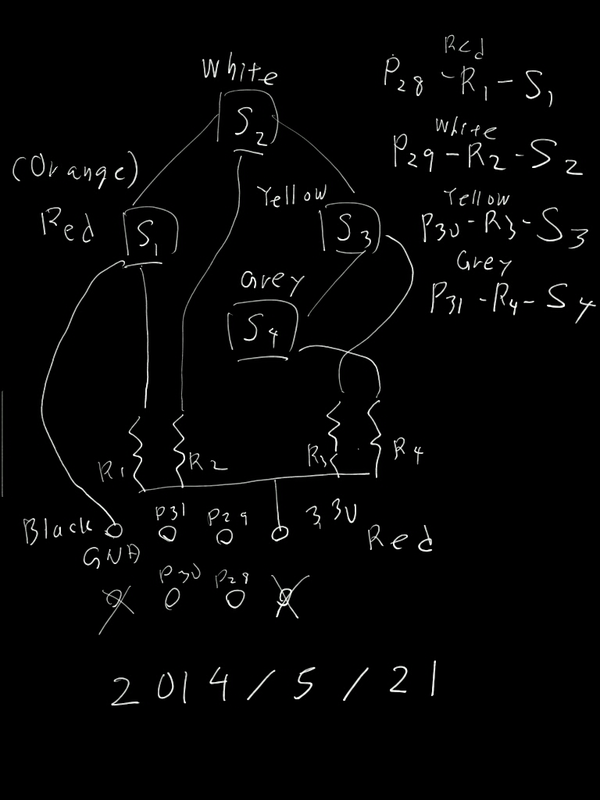 White
S2
(Orange)
Red
S1
Yellow
S3
Grey
S4
Red
P28 - R1 - S1
White
P29 - R2 - S2
Yellow
P30 - R3 - S3
Grey
P31 - R4 - S4
R1
R2
R3
R4
Black
GND
P31
P29
3.3V
Red
P30
P28
2014/5/21